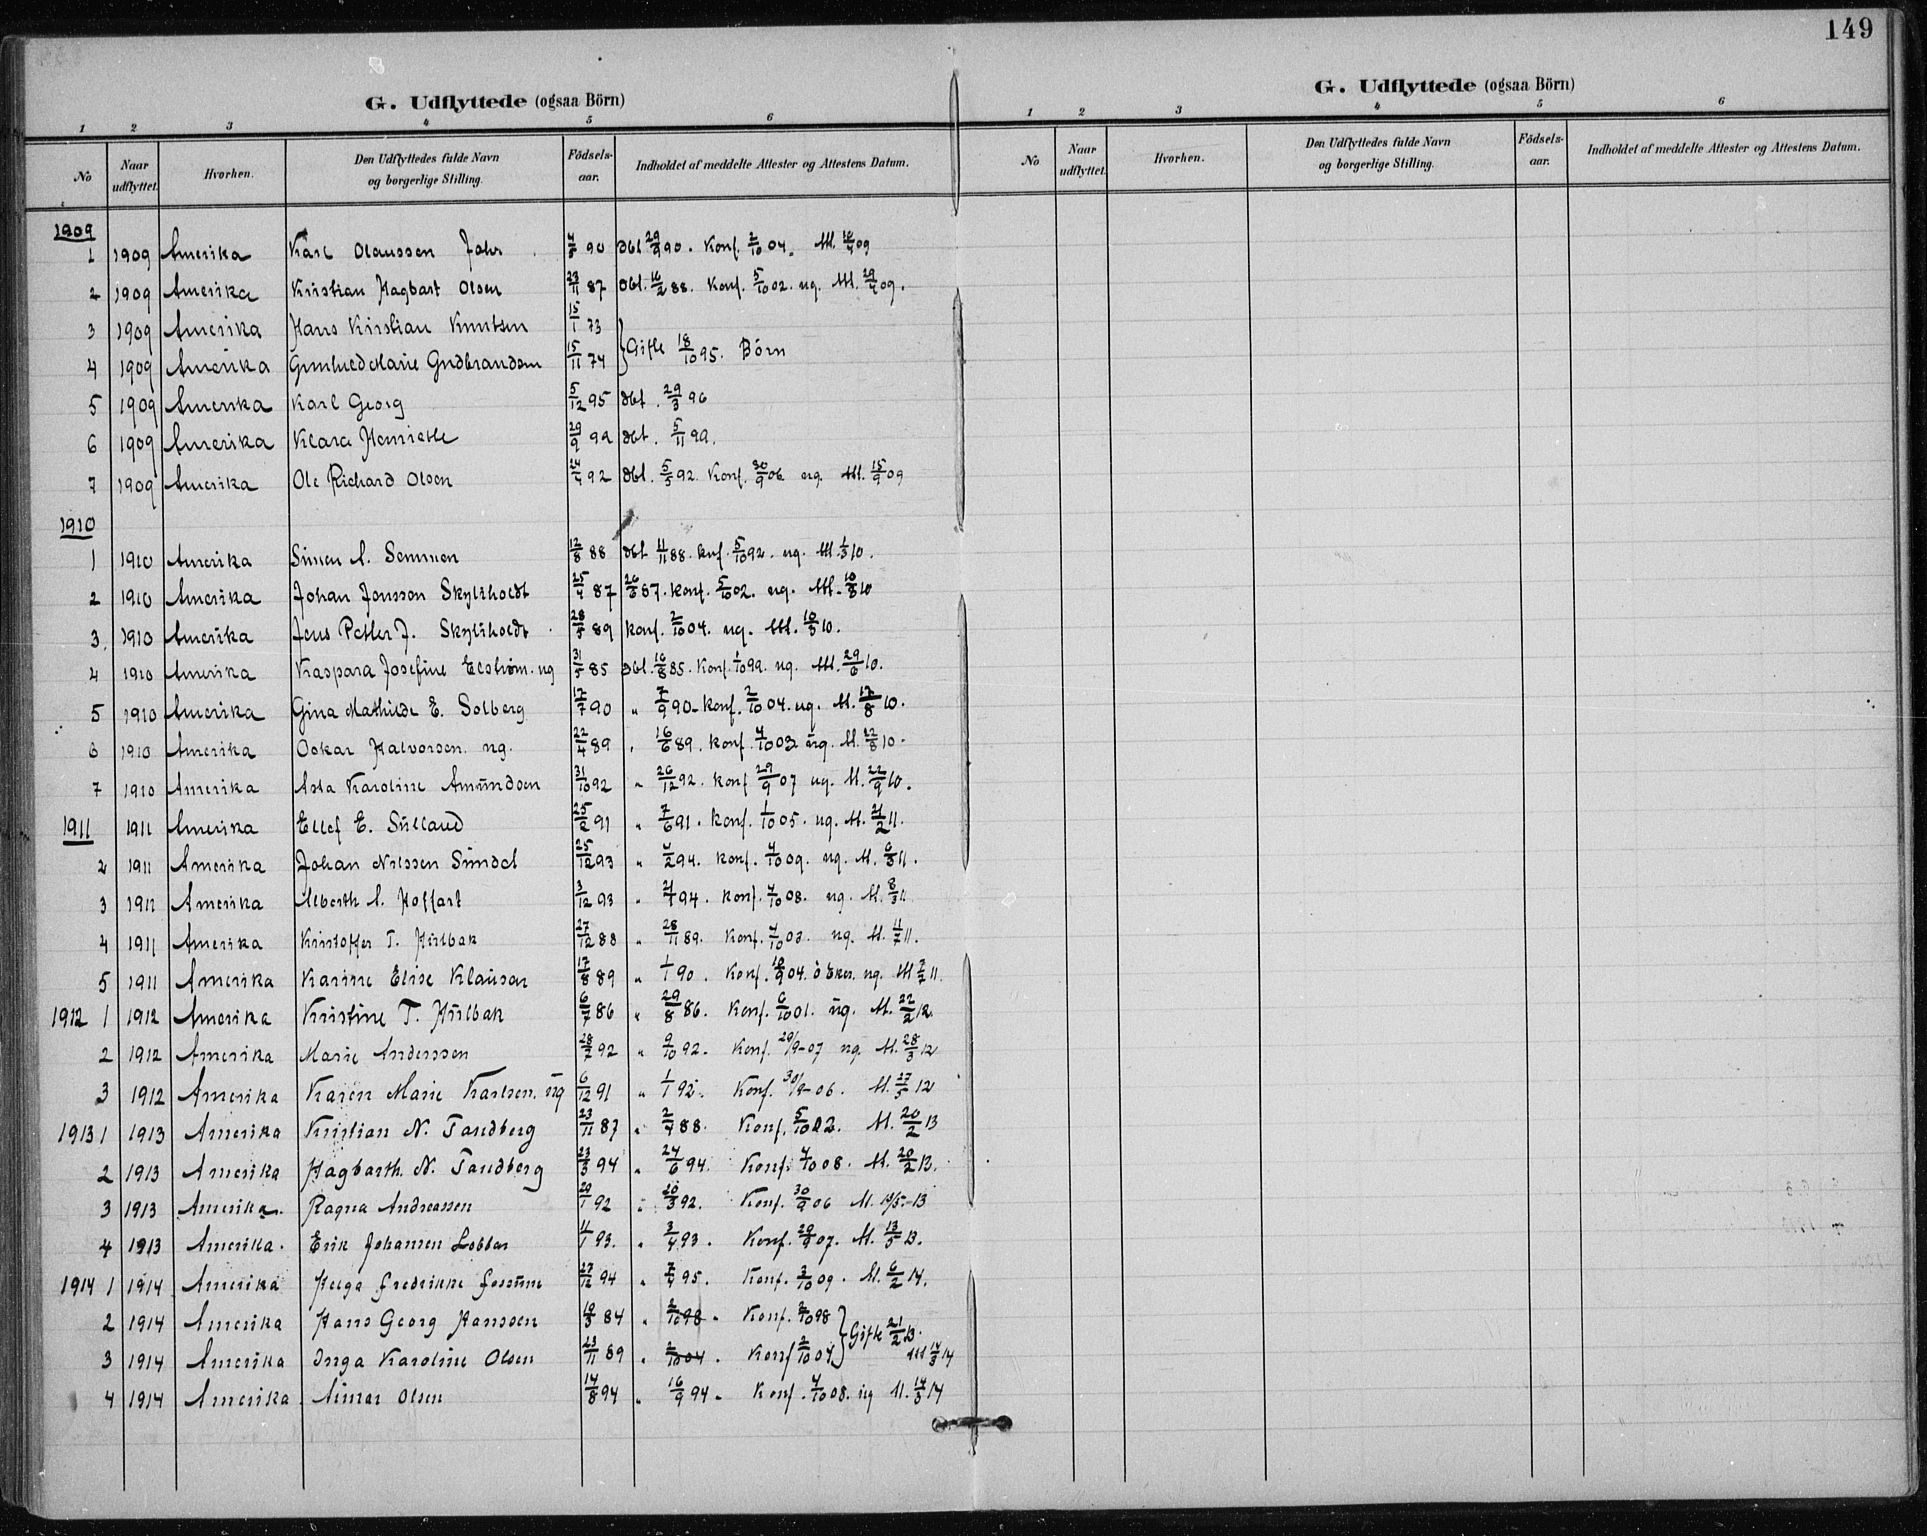 149
G. Udflyttede (ogsaa Börn)
1 2 3 4 5 6
No Naar udflyttet. Hvorhen. Den Udflyttedes fulde Navn og borgerlige Stilling. Födsels-aar. Indholdet af meddelte Attester og Attestens Datum.
1909
1 1909 Amerika Karl Olaussen 90 Konf. 2/10 04. Att. 09
2 1909 Amerika Kristian Hagbart Olsen 23/11 87 Dbt. 16/2 88. Konf. 5/10 02. ug. Att. 29/4 09.
3 1909 Amerika Hans Kristian Knutsen 15/1 73
4 1909 Amerika Marie Gudbrandsen 15/11 74 } Gifte 18/10 95. Börn
5 1909 Amerika Karl Georg 5/12 95 dbt. 29/3 96
6 1909 Amerika Klara Henriette 29/9 99 dbt. 5/11 99.
7 1909 Amerika Ole Richard Olsen 24/4 92 dbt. 5/5 92. Konf. 30/9 06 ug. Att. 15/9 09
1910
1 1910 Amerika Simen A. 12/8 88 dbt 11/11 88. Konf. 5/10 92. ug. Att. 1/3 10.
2 1910 Amerika Johan Jonsson 25/4 87 26/6 87. Konf. 5/10 02. ug. Att. 10/3 10
3. 1910 Amerika Jens Petter J. 89 Konf. 2/10 04. ug. Att. 10/3 10.
4 1910 Amerika Kaspara Josefine Ekström. ug 31/5 85 Dbt. 16/8 85. Konf. 1/10 99. ug. Att. 29/6 10.
5 1910 Amerika Gina Mathilde E. Solberg 17/7 90 " 7/9 90. Konf. 2/10 04. ug. At. 17/8 10.
6 1910 Amerika Oskar Halvorsen. ug. 22/4 89 " 16/6 89. Konf. 4/10 03 ug. At. 22/8 10.
7 1910 Amerika Asta Karoline Amundsen 31/10 92 " 26/12 92. Konf 29/9 07 ug. At. 22/9 10.
1911 1911 Amerika Ellef E. 25/2 91 " 7/6 91. Konf. 1/10 05. ug. At. 21/2 11.
2 1911 Amerika Johan Nilssen 25/12 93 " 4/2 94. Konf. 4/10 09. ug. At. 6/3 11.
3 1911 Amerika Alberth A. Hoffart 3/12 93 " 94. Konf. 4/10 08. ug. At. 8/3 11.
4 1911 Amerika Kristoffer T. Hulbak 27/12 88 " 89. Konf. 4/10 03. ug. At. 11/7 11.
5 1911 Amerika Karine Elise Klausen 17/8 89 " 1/1 90. Konf. 04. ug. At 11.
1912 1 1912 Amerika Kristine T. Hulbak 6/7 86 " 29/8 86. Konf. 6/10 01. ug. At. 22/2 12.
2 1912 Amerika Marie Anderssen 28/7 92 " 9/10 92. Konf. 29/9-07 ug. At. 28/3 12
3 1912 Amerika Karen Marie Karlsen. ug 6/12 91 " 1/1 92. Konf. 30/9-06. At. 27/5 12
1913 1 1913 Amerika Kristian N. Tandberg 23/11 87 " 2/4 88. Konf. 5/10 02. At. 20/2 13
2 1913 Amerika Hagbarth N. Tandberg 23/3 94 " 24/6 94. Konf. 4/10 08. At. 20/2 13.
3 1913 Amerika. Ragna Andreassen 20/1 92 " 20/3 92. Konf. 30/9 06 At. 13
4 1913 Amerika. Erik Johansen 11/1 93. " 3/4 93. Konf. 29/9 07. At. 13/5 13.
1914 1 1914 Amerika Helga Fredrikke 27/12 94 " 7/4 95. Konf. 3/10 09. At. 6/2 14.
2 1914 Amerika Hans Georg Hanssen 19/3 84 " 2/10 98. Konf. 2/10 98
3 1914 Amerika Inga Karoline Olsen 23/11 89 " 2/10 04. Konf 2/10 04. } Gifte 21/2 13. Att 14/3 14
4 1914 Amerika. Olsen 14/8 94 " 16/9 94. Konf. 4/10 08. ug At. 14/3 14
G. Udflyttede (ogsaa Börn)
1 2 3 4 5 6
No Naar udflyttet. Hvorhen. Den Udflyttedes fulde Navn og borgerlige Stilling. Födsels-aar. Indholdet af meddelte Attester og Attestens Datum.